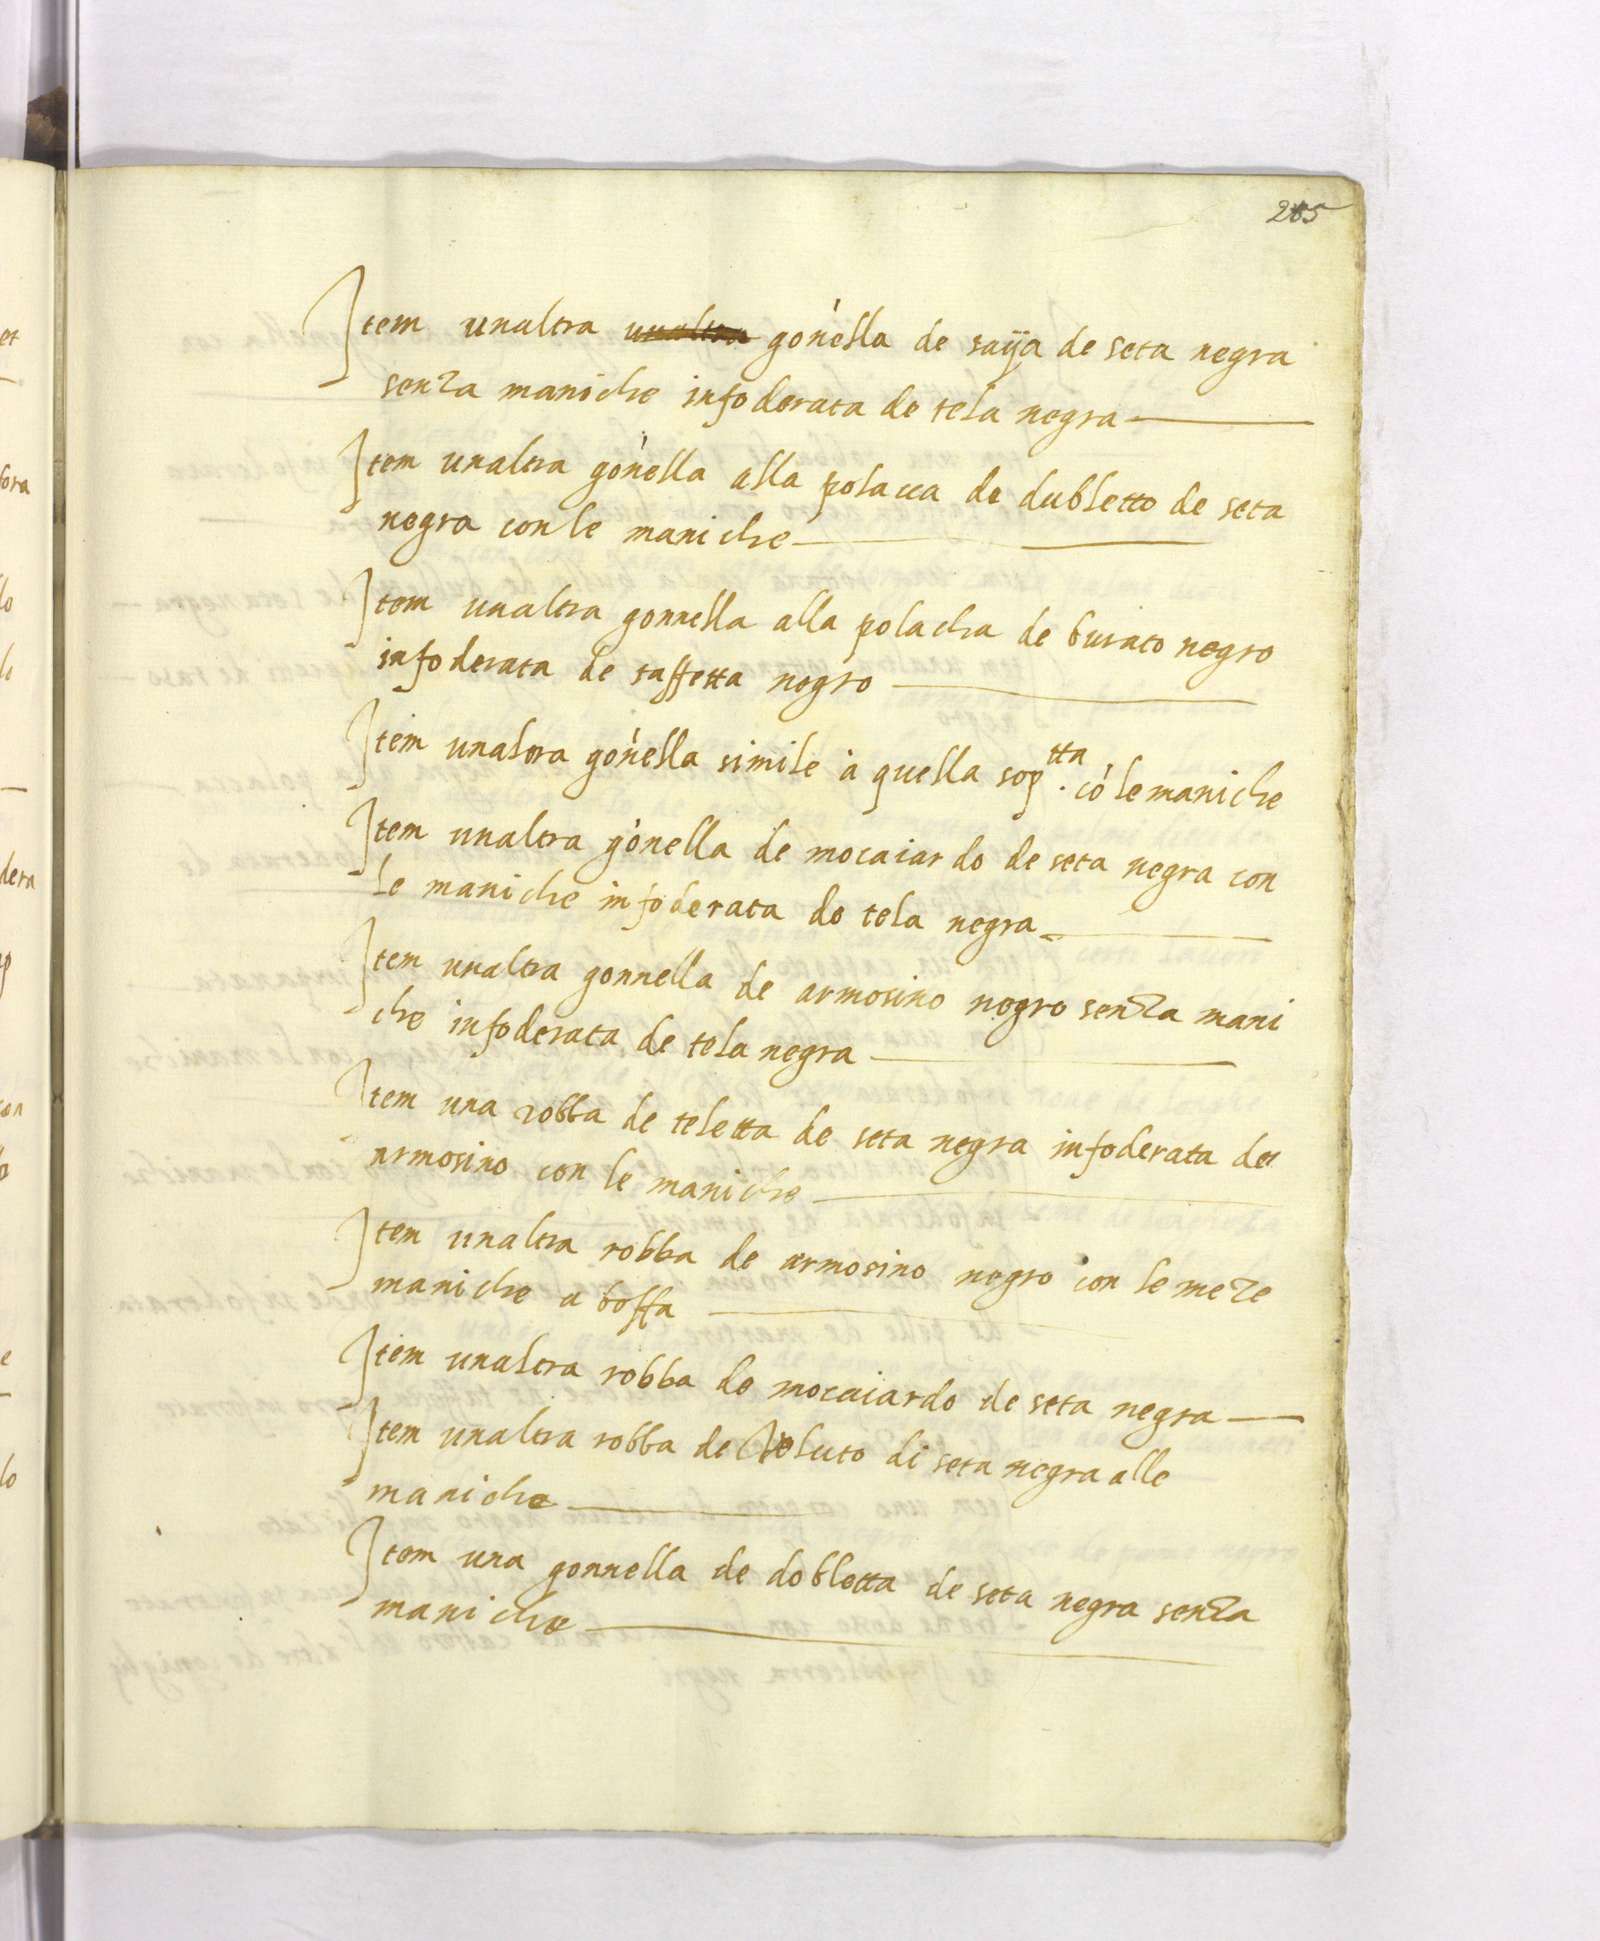 265
Item unaltra unaltra gónella de saÿa de seta negra
senza maniche infoderata de tela negra
Item unaltra gónella alla polacca de dubletto de seta
negra con le maniche
Item unaltra gonnella alla polacha de burato negro
infoderata de taffetta negro
Item unaltra gónella simile à quella sop.tta có le maniche
Item unaltra gónella de mocaiardo de seta negra con
le maniche infoderata de tela negra
Item unaltra gonnella de armosino negro senza mani
che infoderata de tela negra
Item una robba de teletta de seta negra infoderata de
armosino con le maniche
Item unaltra robba de armosino negro con le meze
maniche a boffa
Item unaltra robba de mocaiardo de seta negra
Item unaltra robba de Veluto di seta negra alle
maniche
Item una gonnella de dobletta de seta negra senza
maniche